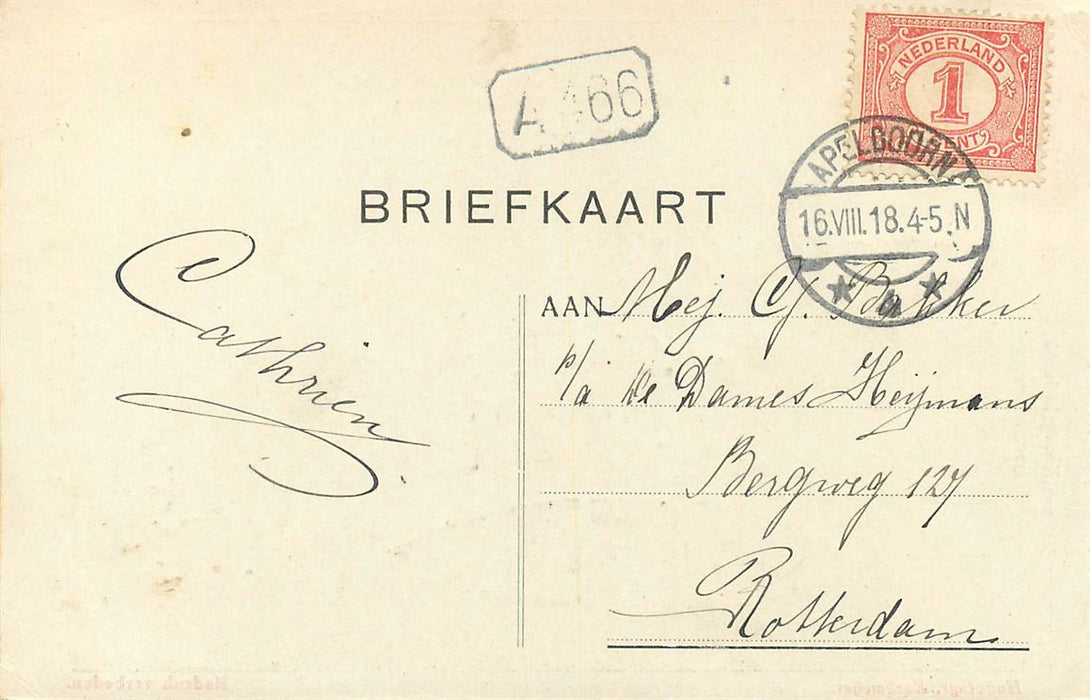 NEDERLAND
1
CENT
APELDOORN
16.VIII.18.4-5.N
BRIEFKAART
Cathrien
AAN Mej. C. J. Bakker
p/a de Dames Heijmans
Bergweg 127
Rotterdam
Nadruk verboden.